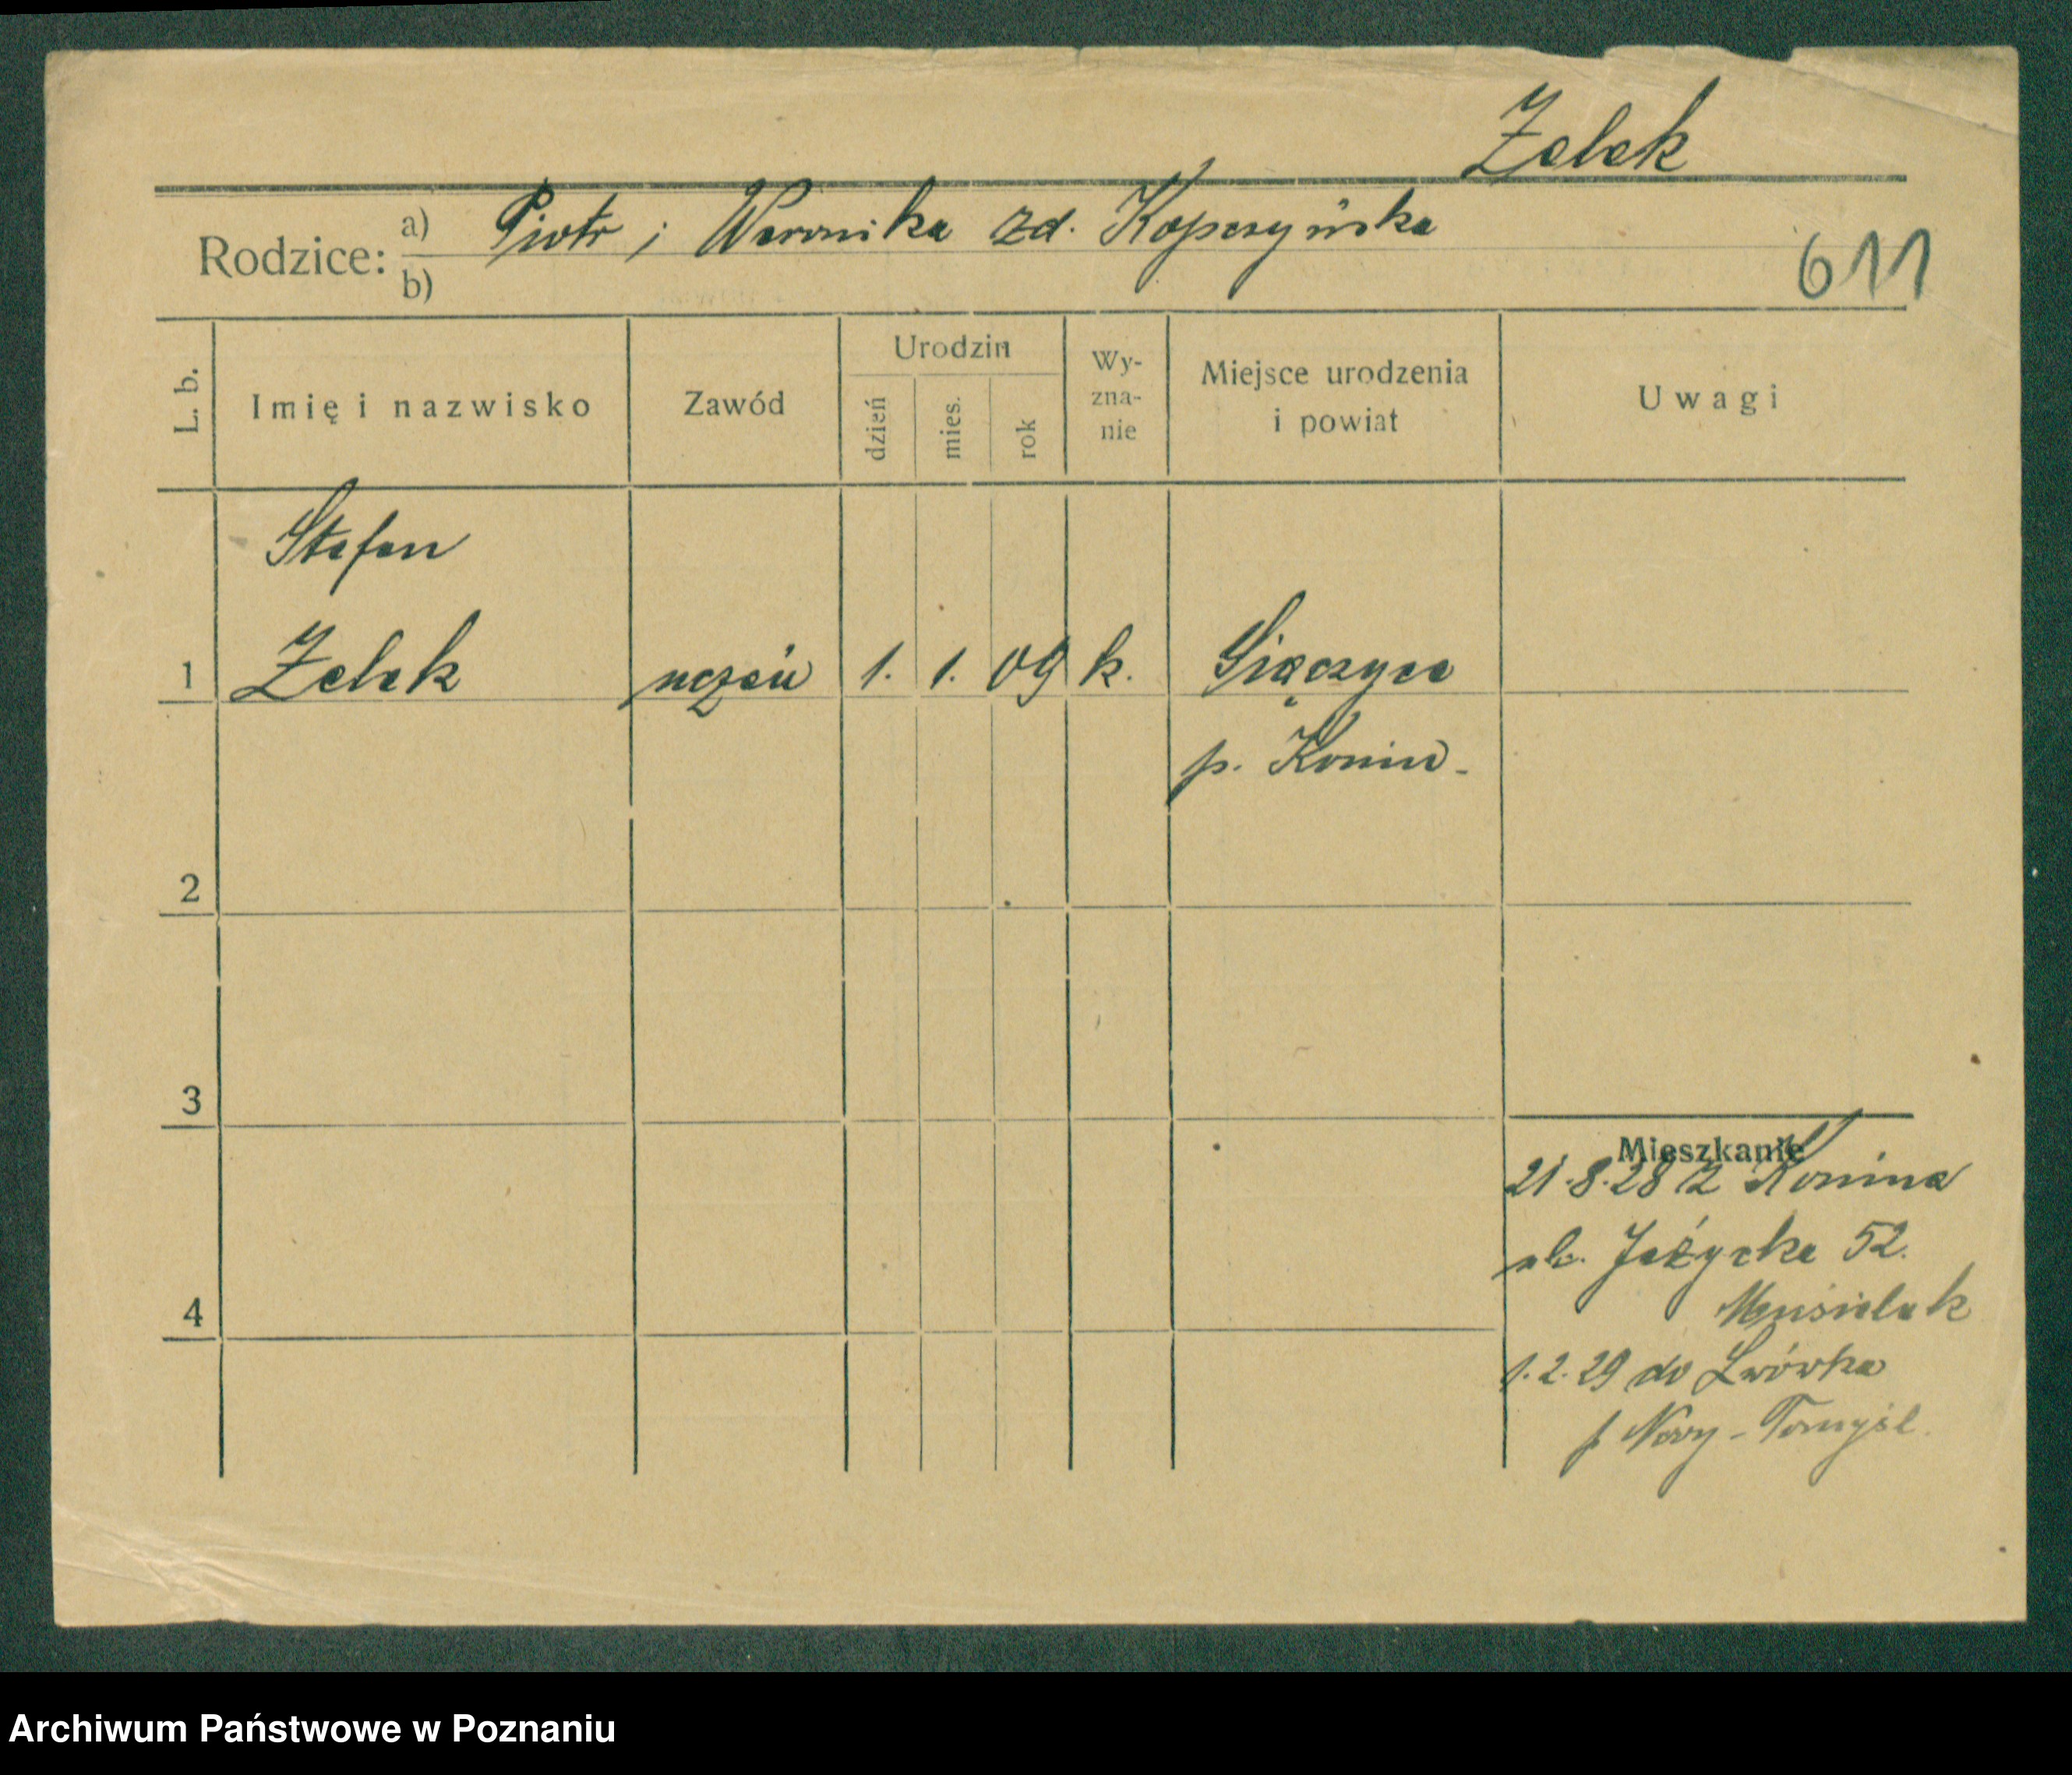 Zelek
Rodzice: a) Piotr i Weronika zd. Kopczyńska
b)
611
L. b. Imię i nazwisko Zawód Urodzin dzień mies. rok Wy-zna-nie Miejsce urodzenia i powiat Uwagi
Stefan
1 Zelek uczeń 1. 1. 09 k.
p. Konin -
2
3
Mieszkanie
21.8.28 z Konina
ul. Jeżycka 52.
4
Musielak
1.2.29 do Lwówka
p Nowy-Tomyśl.
Archiwum Państwowe w Poznaniu